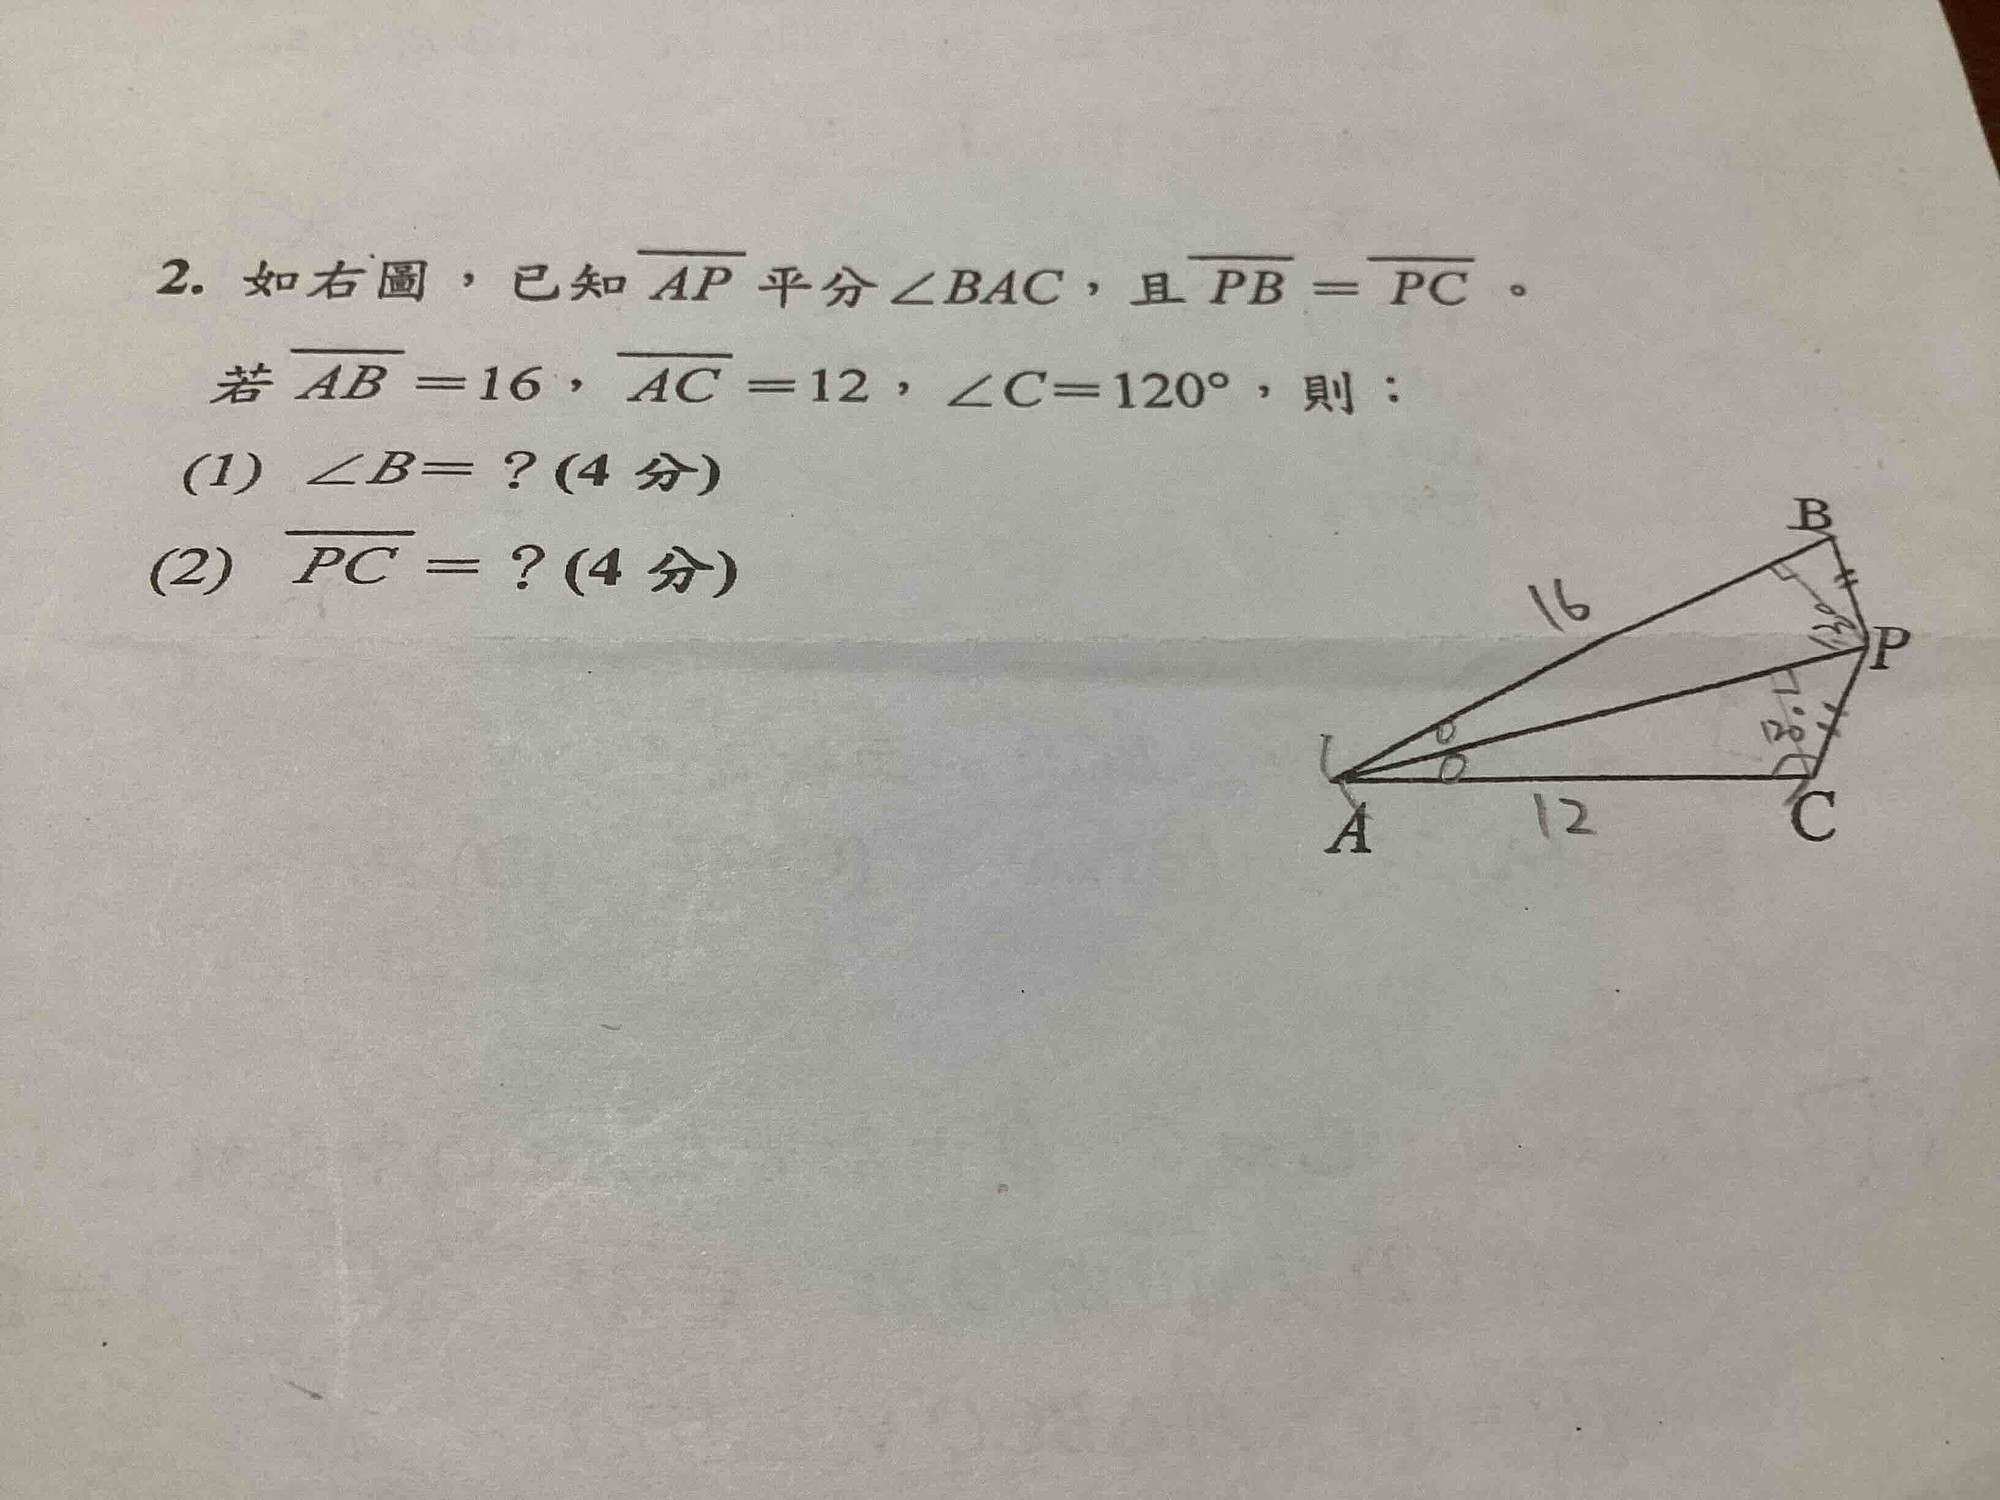 2. 如右圖，已知 AP 平分∠BAC，且 PB = PC。
若 AB =16，AC =12，∠C=120°，則：
(1) ∠B= ？(4 分)
(2) PC = ？(4 分)
B
16
P
120°
A
12
C